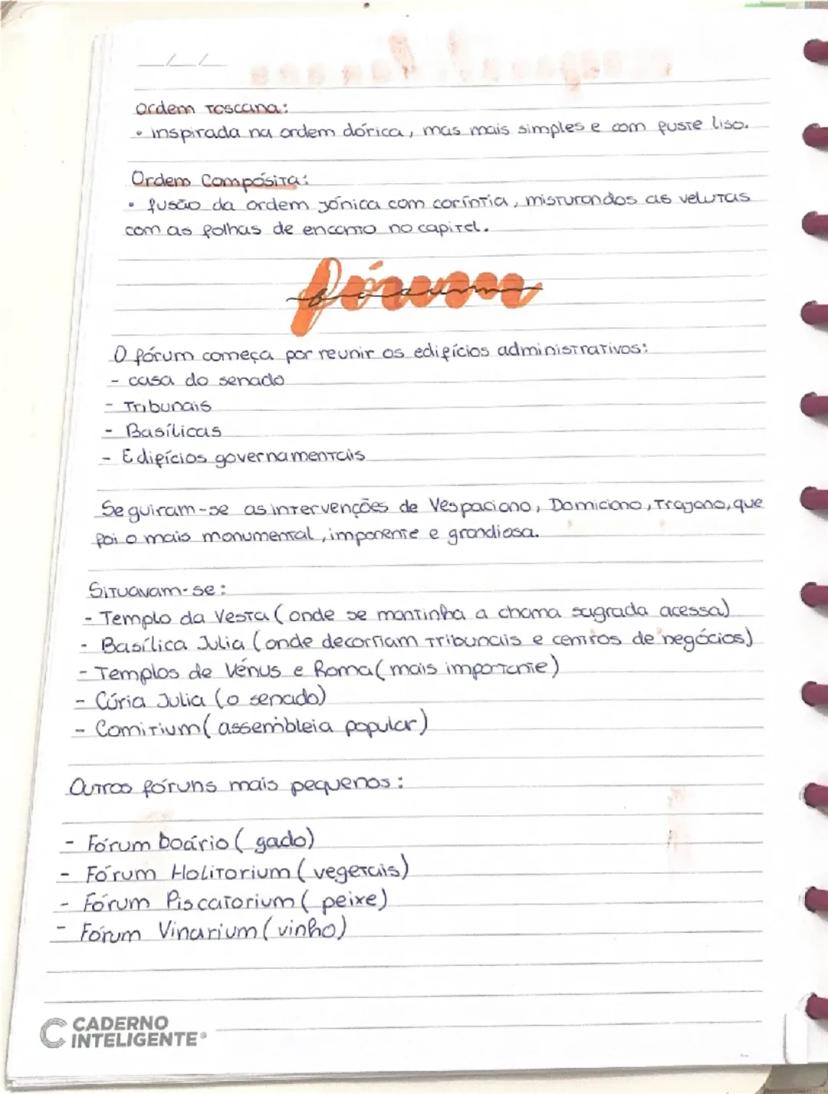 Ordem Toscana:
• inspirada na ordem dórica, mas mais simples e com fuste liso.
Ordem Compósita:
• fusão da ordem jónica com coríntia, misturandos as velutas
com as folhas de encanto no capitel.
fórum
O fórum começa por reunir os edifícios administrativos:
- casa do senado
- Tribunais
- Basílicas
- Edifícios governamentais
Seguiram-se as intervenções de Vespaciano, Domiciano, Trajano, que
foi o mais monumental, imponente e grandiosa.
Situavam-se:
- Templo da Vesta (onde se mantinha a chama sagrada acessa)
- Basílica Julia (onde decorriam tribunais e centros de negócios)
- Templos de Vénus e Roma (mais importante)
- Cúria Julia (o senado)
- Comitium (assembleia popular)
Outros fóruns mais pequenos:
- Fórum boário (gado)
- Fórum Holitorium (vegetais)
- Fórum Piscatorium (peixe)
- Fórum Vinarium (vinho)
CADERNO
INTELIGENTE®